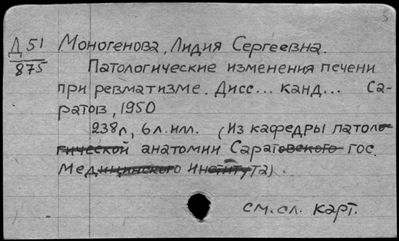 Д 51
875
Моногенова, Лидия Сергеевна.
Патологические изменения печени
при ревматизме. Дисс... канд... Са-
ратов, 1950
238л, 6л.илл. (Из кафедры патоло-
гической анатомии Саратовского гос.
Медицинского Института).
см. сл. карт.